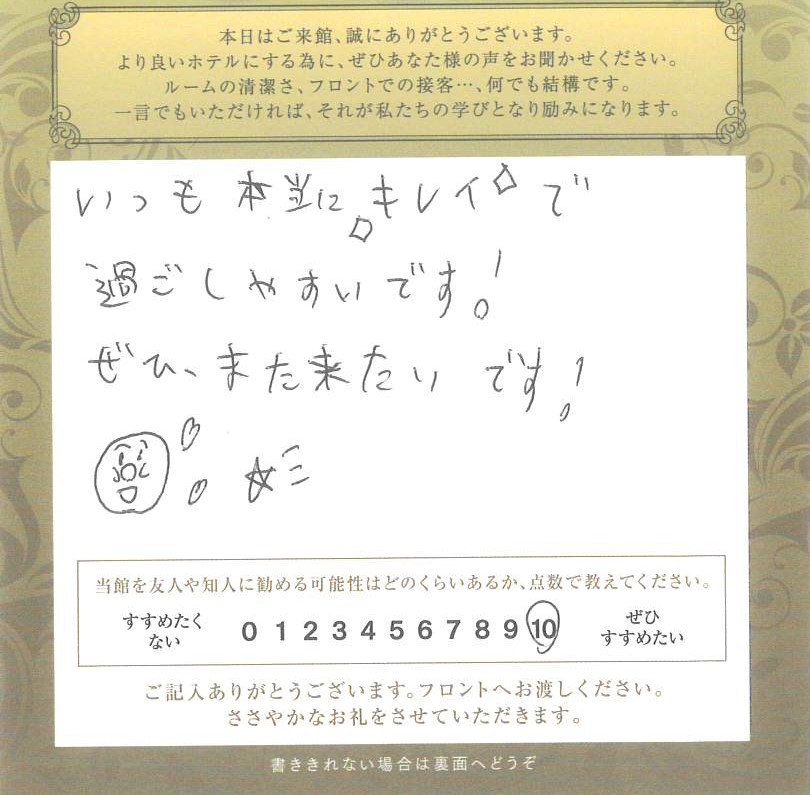 本日はご来館、誠にありがとうございます。
より良いホテルにする為に、ぜひあなた様の声をお聞かせください。
ルームの清潔さ、フロントでの接客…、何でも結構です。
一言でもいただければ、それが私たちの学びとなり励みになります。
いつも本当にキレイで
過ごしやすいです!
ぜひ、また来たいです!
当館を友人や知人に勧める可能性はどのくらいあるか、点数で教えてください。
すすめたくない 0 1 2 3 4 5 6 7 8 9 10 ぜひすすめたい
ご記入ありがとうございます。フロントへお渡しください。
ささやかなお礼をさせていただきます。
書ききれない場合は裏面へどうぞ